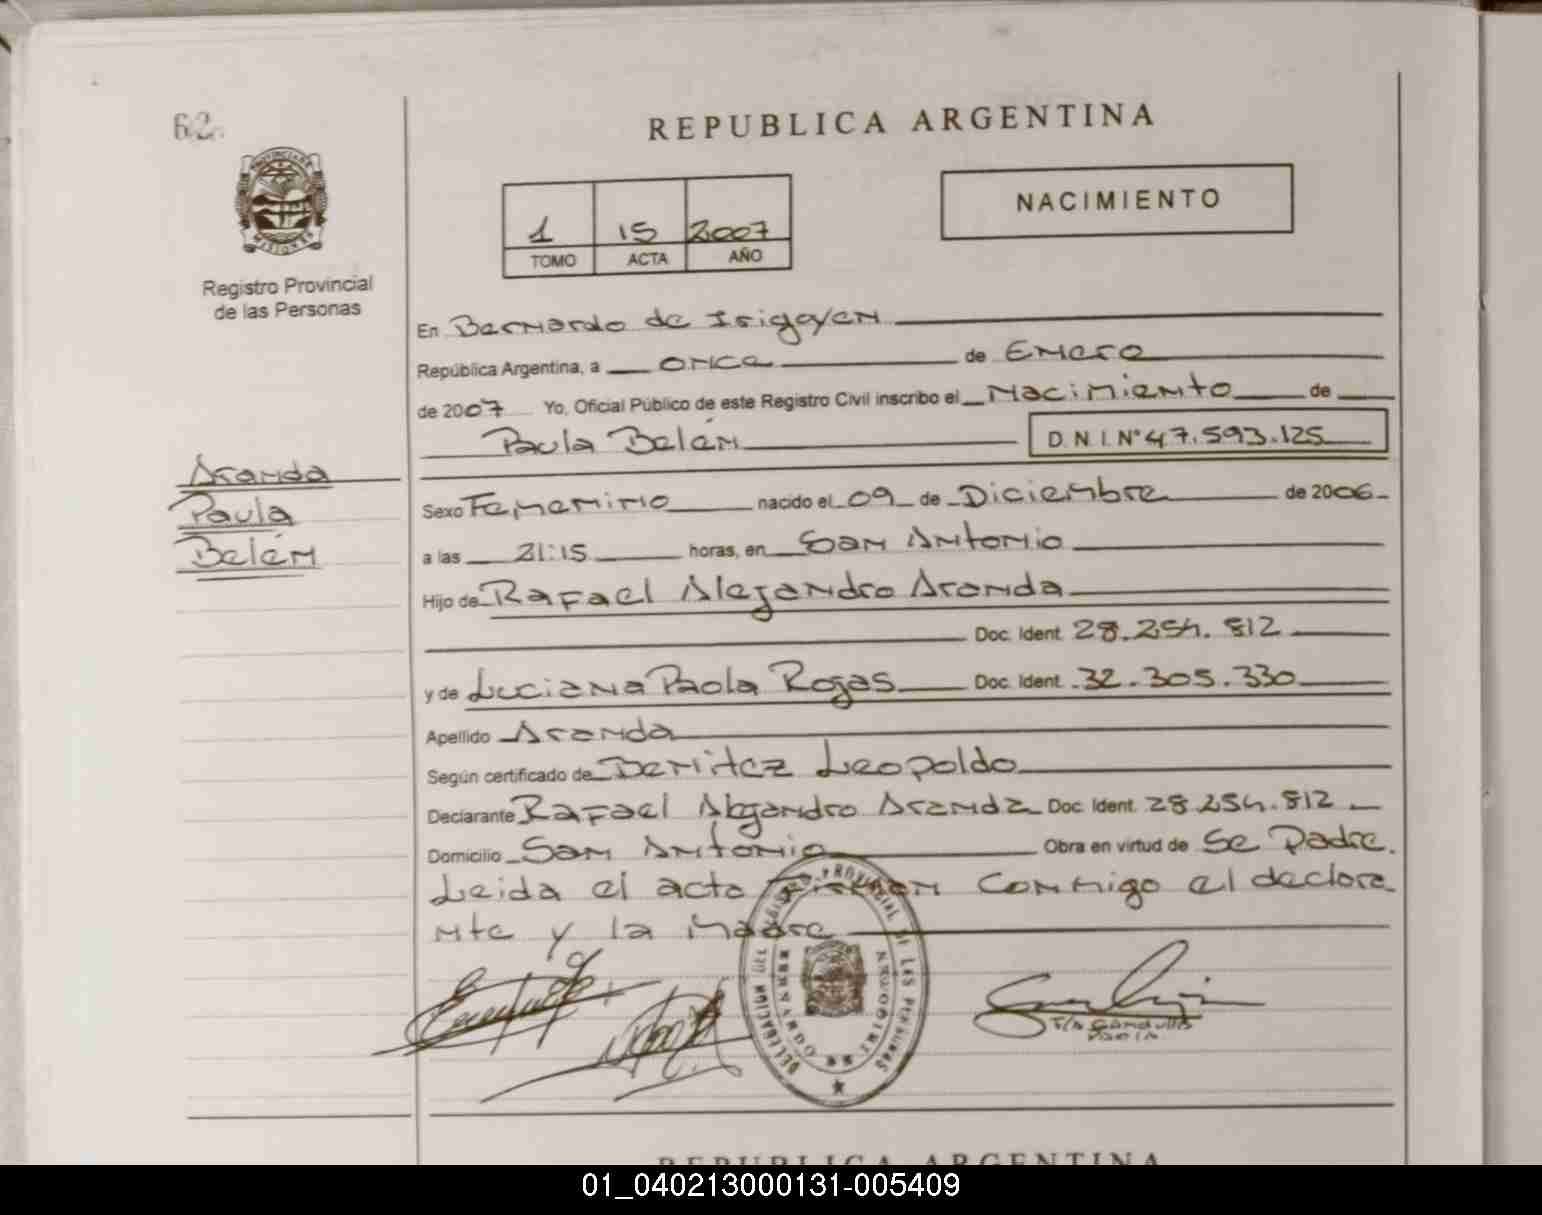 62
REPUBLICA ARGENTINA
PROVINCIA DE
MISIONES
Registro Provincial
de las Personas
1 15 2007
TOMO ACTA AÑO
NACIMIENTO
En Bernardo de Irigoyen
República Argentina, a once de Enero
de 2007 Yo, Oficial Público de este Registro Civil inscribo el Nacimiento de
Paula Belén D.N.I. Nº 47.593.125
Aranda
Paula
Belén
Sexo Femenino nacido el 09 de Diciembre de 2006
a las 21:15 horas, en San Antonio
Hijo de Rafael Alejandro Aranda
Doc. Ident. 28.254.812
y de Luciana Paola Rojas Doc. Ident. 32.305.330
Apellido Aranda
Según certificado de Benitez Leopoldo
Declarante Rafael Alejandro Aranda Doc. Ident. 28.254.812
Domicilio San Antonio Obra en virtud de Se Padre.
Leida el acta Firman Conmigo el declara
nte y la Madre
DELEGACION DEL REGISTRO PROVINCIAL DE LAS PERSONAS
BERNARDO DE IRIGOYEN
REPUBLICA ARGENTINA
01_040213000131-005409